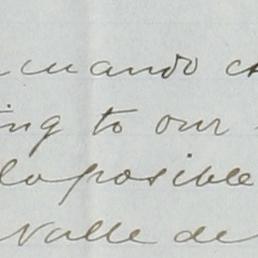 cuando
ing to our
lo posible
Valle de